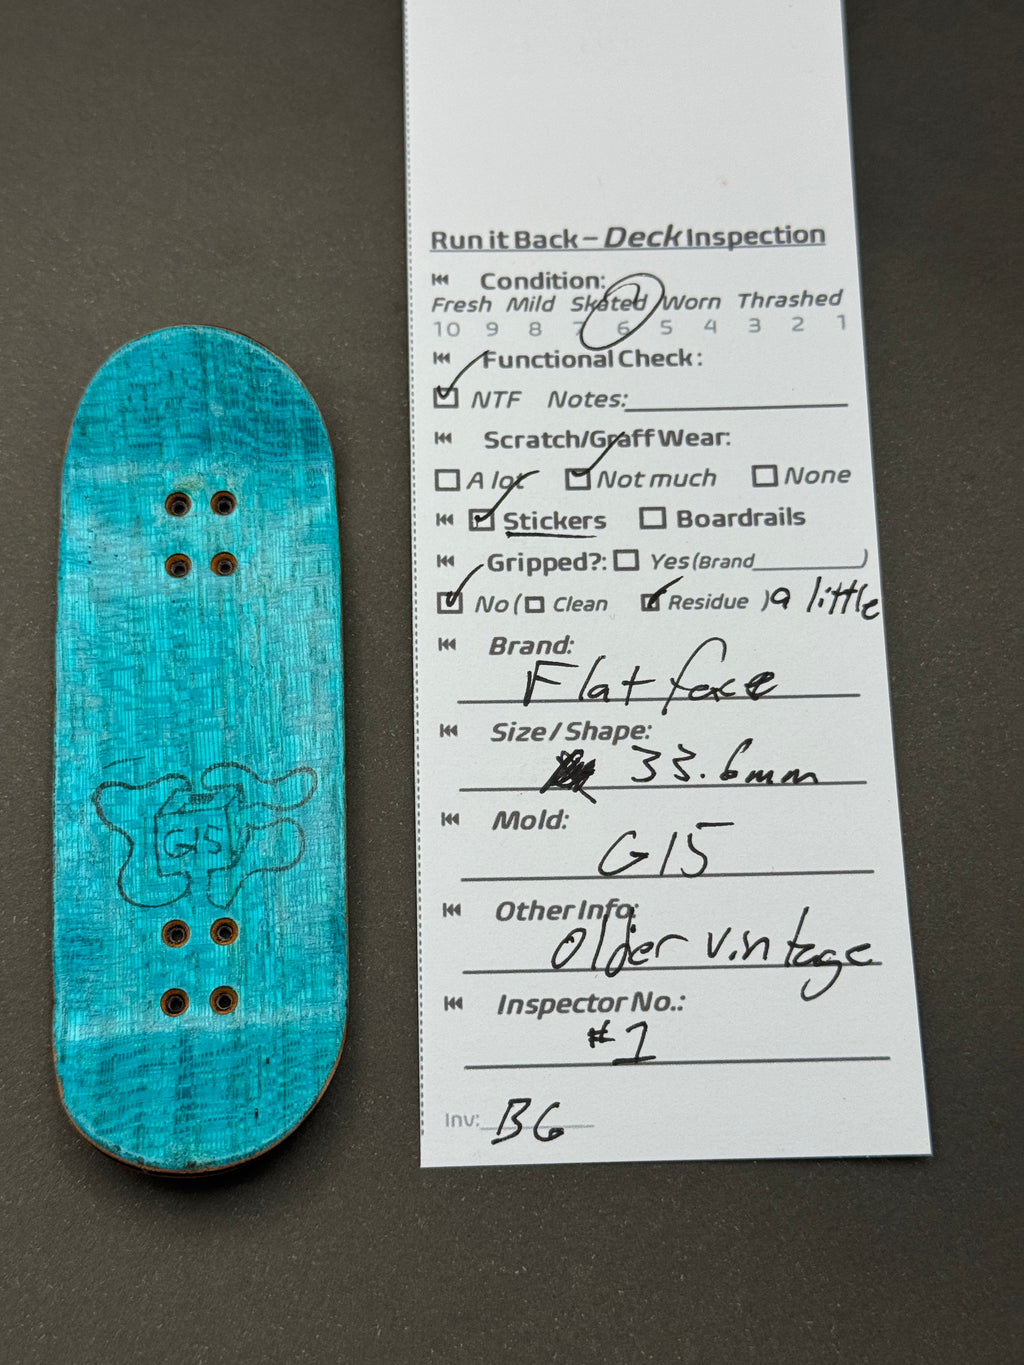 Run it Back – Deck Inspection
Condition:
Fresh Mild Skated Worn Thrashed
10 9 8 7 6 5 4 3 2 1
Functional Check:
NTF Notes:
Scratch/Graff Wear:
A lot Not much None
Stickers Boardrails
Gripped?: Yes (Brand )
No ( Clean Residue ) a little
Brand:
Flatface
Size / Shape:
33.6mm
Mold:
G15
Other Info:
Older vintage
Inspector No.:
#1
Inv: B6
G15